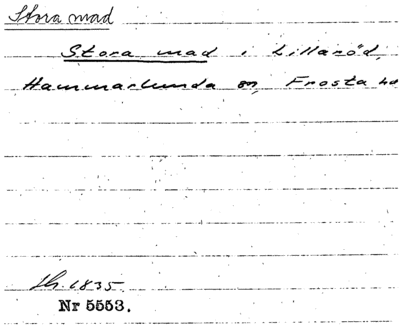 Stora mad
Stora mad i Lillaröd,
Hammarlunda sn, Frosta hd
Sk. 1835.
Nr 5553.